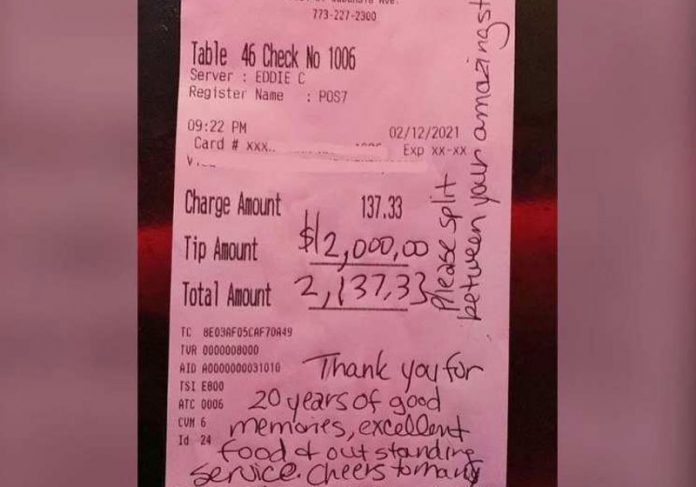 Ave.
773-227-2300
Table 46 Check No 1006
Server : EDDIE C
Register Name : POS7
09:22 PM 02/12/2021
Card # xxx.. Exp xx-xx
Charge Amount 137.33
Tip Amount $2,000.00
Total Amount 2,137.33
TC 8E03AF05CAF70A49
TVR 0000008000
AID A0000000031010
TSI E800
ATC 0006
CVM 6
Id 24
Thank you for
20 years of good
memories, excellent
food & outstanding
service. Cheers to many
Please split
between your amazing